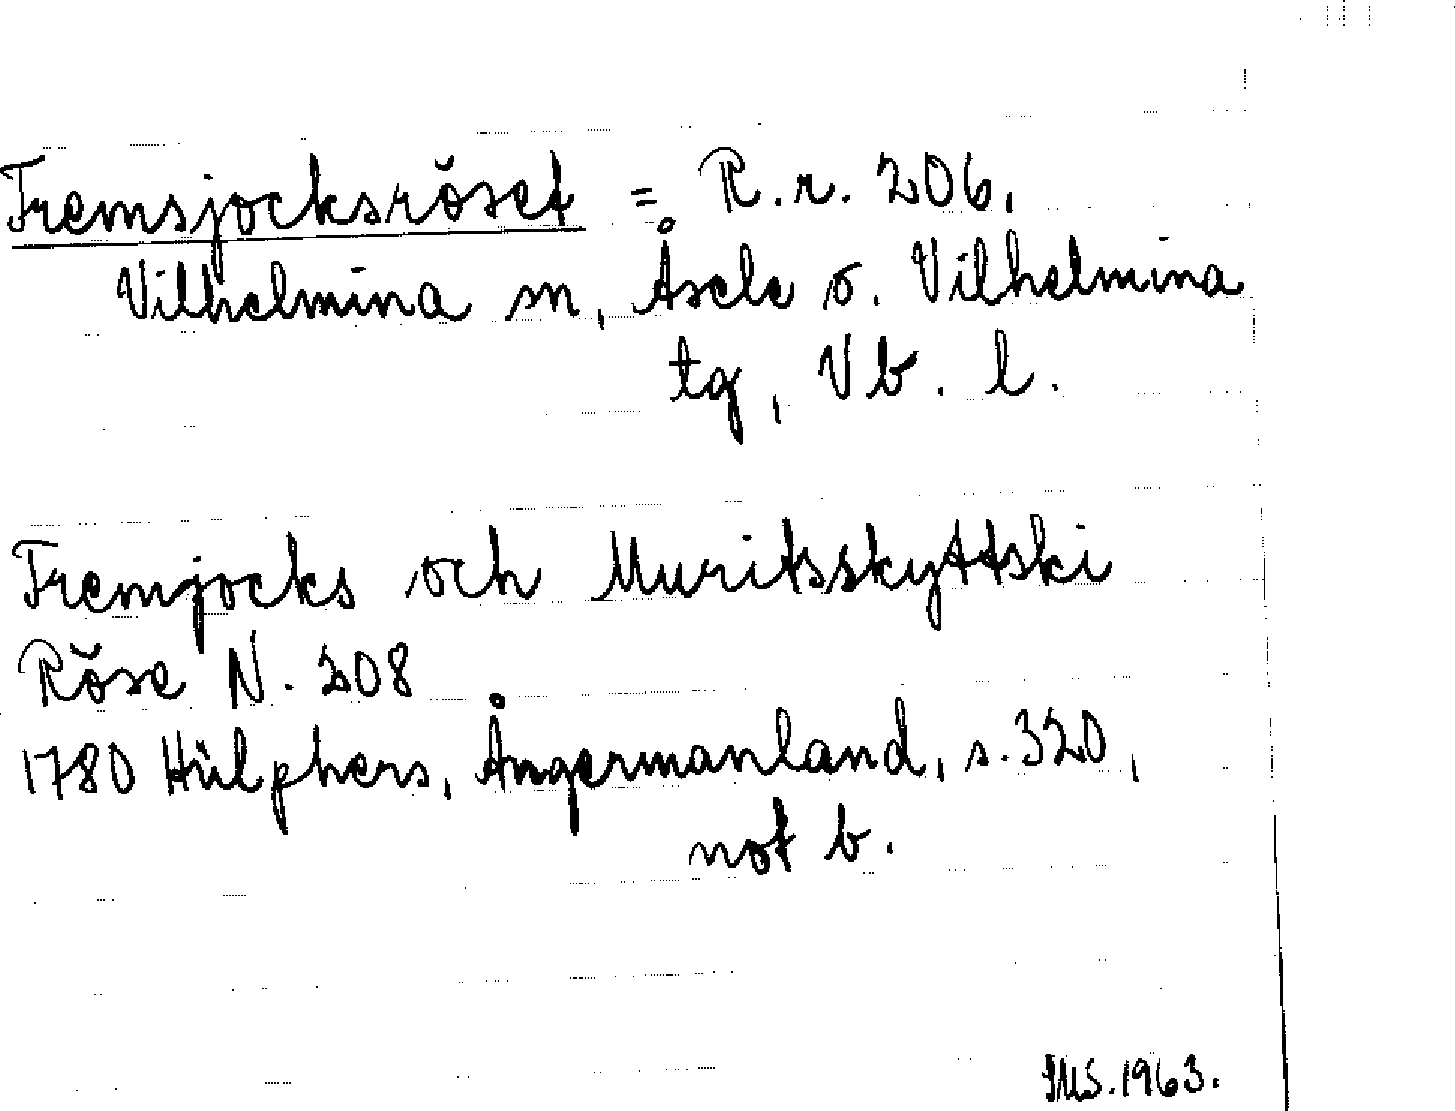 Tremsjocksröset = R.r. 206.
Vilhelmina sn, Åsele o. Vilhelmina
tg, Vb. l.
Tremjocks och Muritsskyttski
Röse N. 208
1780 Hülphers, Ångermanland, s. 320,
not b.
IMS. 1963.